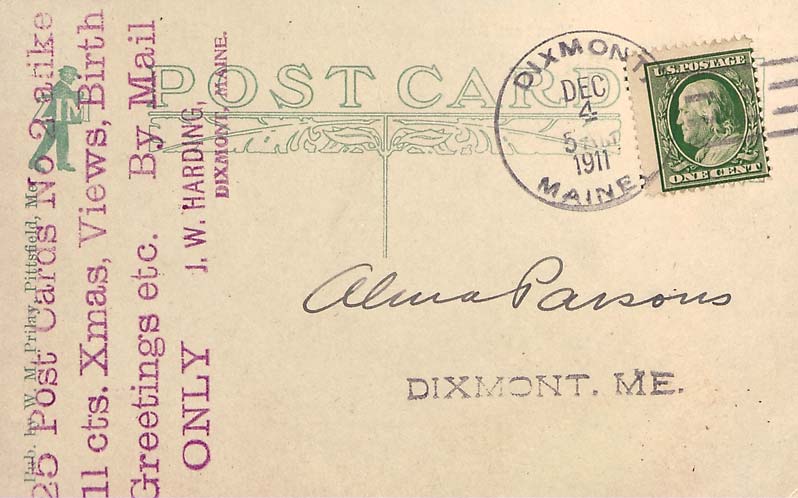 POST CARD
DIXMONT.
DEC
4
1911
MAINE.
U.S. POSTAGE
ONE CENT
Alma Parsons
DIXMONT. ME.
Pub. by W. M. Prilay, Pittsfield, Me.
25 Post Cards No 2 alike
11 cts. Xmas, Views, Birth
Greetings etc. By Mail
ONLY J. W. HARDING,
DIXMONT, MAINE.